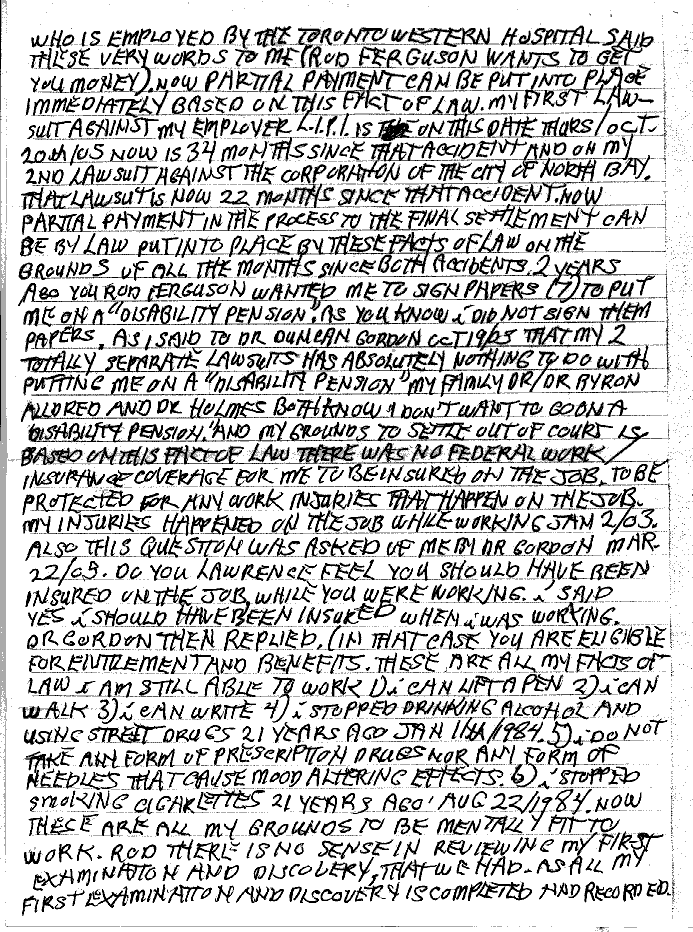 WHO IS EMPLOYED BY THE TORONTO WESTERN HOSPITAL SAID
THESE VERY WORDS TO ME (ROD FERGUSON WANTS TO GET
YOU MONEY). NOW PARTIAL PAYMENT CAN BE PUT INTO PLACE
IMMEDIATELY BASED ON THIS FACT OF LAW. MY FIRST LAW-
SUIT AGAINST MY EMPLOYER L.I.P.I. IS ON THIS DATE THURS/OCT-
20th/05 NOW IS 34 MONTHS SINCE THAT ACCIDENT AND ON MY
2ND LAWSUIT AGAINST THE CORPORATION OF THE CITY OF NORTH BAY.
THAT LAWSUIT IS NOW 22 MONTHS SINCE THAT ACCIDENT. NOW
PARTIAL PAYMENT IN THE PROCESS TO THE FINAL SETTLEMENT CAN
BE BY LAW PUT INTO PLACE BY THESE FACTS OF LAW ON THE
GROUNDS OF ALL THE MONTHS SINCE BOTH ACCIDENTS. 2 YEARS
AGO YOU ROD FERGUSON WANTED ME TO SIGN PAPERS (7) TO PUT
ME ON A "DISABILITY PENSION". AS YOU KNOW i DID NOT SIGN THEM
PAPERS. AS, I SAID TO DR DUNCAN GORDON OCT 19/05 THAT MY 2
TOTALLY SEPARATE LAWSUITS HAS ABSOLUTELY NOTHING TO DO WITH
PUTTING ME ON A "DISABILITY PENSION" MY FAMILY DR/DR BYRON
ALLORED AND DR HOLMES BOTH KNOW I DON'T WANT TO GO ON A
"DISABILITY PENSION." AND MY GROUNDS TO SETTLE OUT OF COURT IS
BASED ON THIS FACT OF LAW THERE WAS NO FEDERAL WORK
INSURANCE COVERAGE FOR ME TO BE INSURED ON THE JOB, TO BE
PROTECTED FOR ANY WORK INJURIES THAT HAPPEN ON THE JOB.
MY INJURIES HAPPENED ON THE JOB WHILE WORKING JAN 2/03.
ALSO THIS QUESTION WAS ASKED OF ME BY DR GORDON MAR-
22/05. DO YOU LAWRENCE FEEL YOU SHOULD HAVE BEEN
INSURED ON THE JOB, WHILE YOU WERE WORKING. i SAID
YES i SHOULD HAVE BEEN INSURED WHEN i WAS WORKING.
DR GORDON THEN REPLIED. (IN THAT CASE YOU ARE ELIGIBLE
FOR ENTITLEMENT AND BENEFITS. THESE ARE ALL MY FACTS OF
LAW i AM STILL ABLE TO WORK 1) i CAN LIFT A PEN 2) i CAN
WALK 3) i CAN WRITE 4) i STOPPED DRINKING ALCOHOL AND
USING STREET DRUGS 21 YEARS AGO JAN 11th/1984. 5) i DO NOT
TAKE ANY FORM OF PRESCRIPTION DRUGS NOR ANY FORM OF
NEEDLES THAT CAUSE MOOD ALTERING EFFECTS. 6) i STOPPED
SMOKING CIGARETTES 21 YEARS AGO' AUG 22/1984. NOW
THESE ARE ALL MY GROUNDS TO BE MENTALLY FIT TO
WORK. ROD THERE IS NO SENSE IN REVIEWING MY FIRST
EXAMINATION AND DISCOVERY, THAT WE HAD. AS ALL MY
FIRST EXAMINATION AND DISCOVERY IS COMPLETED AND RECORDED.